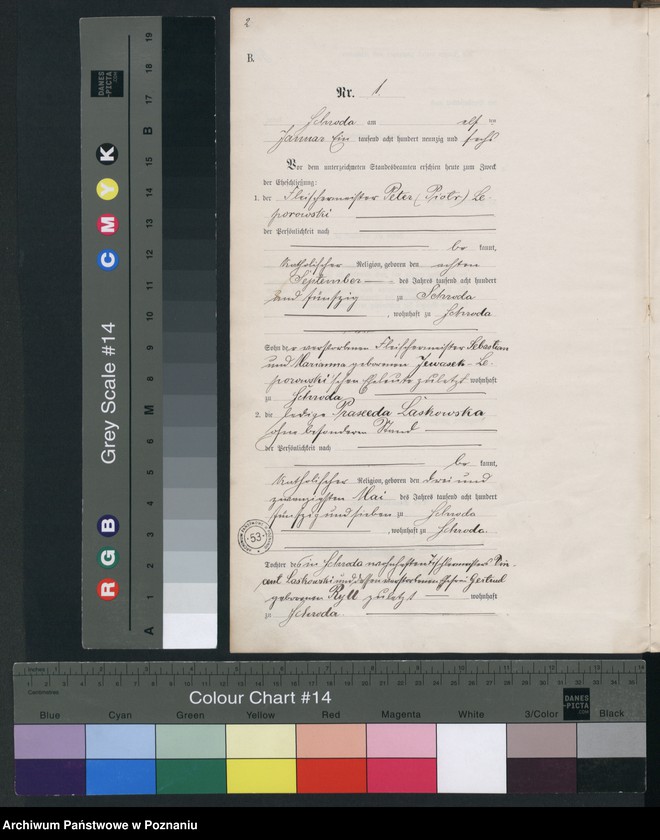 2
B.
Nr. 1.
Schroda am elf ten
Januar Ein tausend acht hundert neunzig und sechs
Vor dem unterzeichneten Standesbeamten erschien heute zum Zweck
der Eheschließung:
1. der Fleischermeister Peter (Piotr) Le-
porowski
der Persönlichkeit nach
be kannt,
katholischer Religion, geboren den achten
September des Jahres tausend acht hundert
und fünfzig zu Schroda
, wohnhaft zu Schroda
Sohn der verstorbenen Fleischermeister Sebastian
und Marianna geborenen Le-
porowski'schen Eheleute zuletzt wohnhaft
zu Schroda
2. die ledige Praxeda Laskowska,
ohne besonderen Stand
der Persönlichkeit nach
be kannt,
katholischer Religion, geboren den drei und
zwanzigsten Mai des Jahres tausend acht hundert
fünfzig und sieben zu Schroda
, wohnhaft zu Schroda.
Tochter des in Schroda wohnhaften Tischlermeisters Vin-
cent Laskowski und dessen verstorbenen Ehefrau Gertrud
geborenen Ryll zuletzt wohnhaft
zu Schroda.
53
Grey Scale #14
R G B
C M Y K
A 1 2 3 4 5 6 M 8 9 10 11 12 13 14 15 B 17 18 19
DANES
-PICTA
.COM
Inches
Centimetres
Colour Chart #14
DANES
-PICTA
.COM
Blue Cyan Green Yellow Red Magenta White 3/Color Black
Archiwum Państwowe w Poznaniu